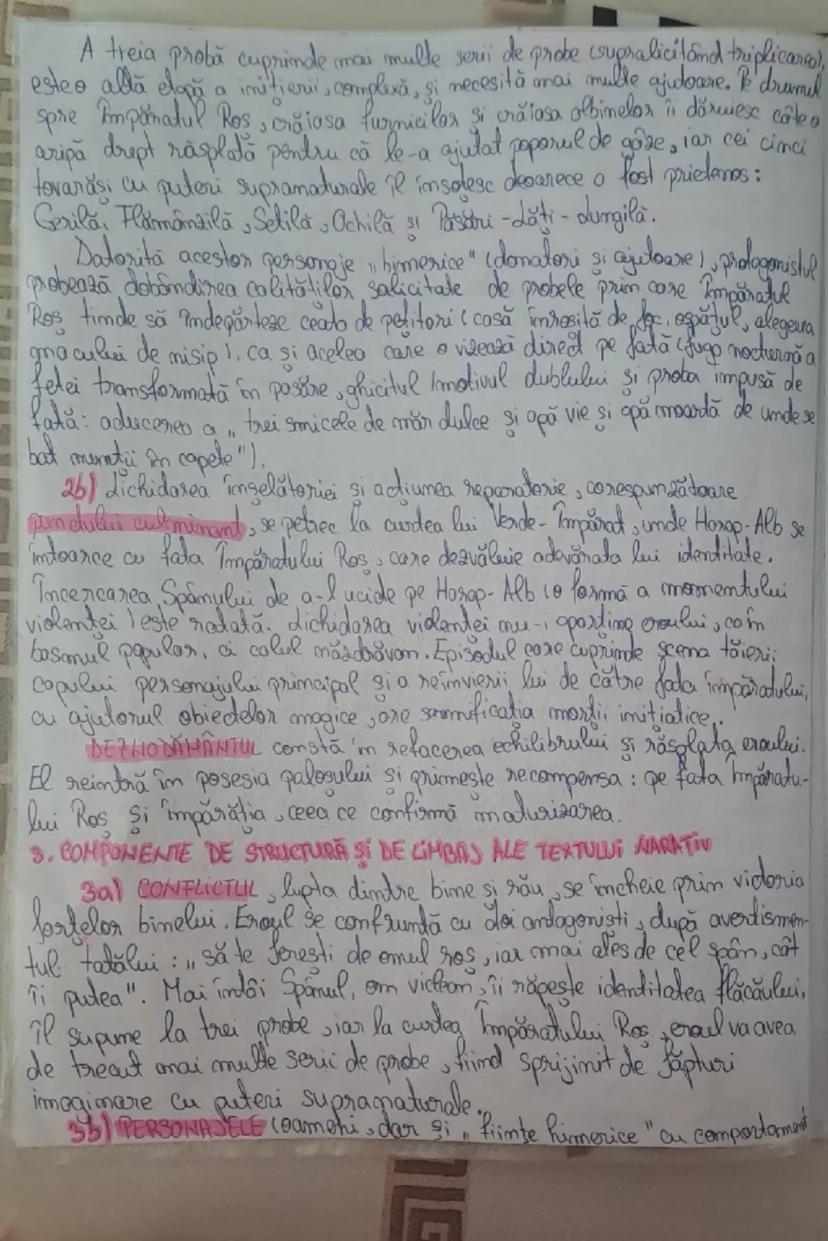 A treia probă cuprinde mai multe serii de probe (supralicitând triplicarea),
este o altă etapă a inițierii, complexă, și necesită mai multe ajutoare. Pe drumul
spre Împăratul Roș, crăiasa furnicilor și crăiasa albinelor îi dăruiesc câte o
aripă drept răsplată pentru că le-a ajutat poporul de gâze, iar cei cinci
tovarăși cu puteri supranaturale îl însoțesc deoarece a fost prietenos:
Gerilă, Flămânzilă, Setilă, Ochilă și Păsări-Lăți-Lungilă.
Datorită acestor personaje „himerice" (donatori și ajutoare), protagonistul
probează dobândirea calităților solicitate de probele prin care Împăratul
Roș tinde să îndepărteze ceata de pețitori (casă înroșită de foc, ospățul, alegerea
macului de nisip), ca și acelea care o vizează direct pe fată (fuga nocturnă a
fetei transformată în pasăre, ghicitul/motivul dublului și proba impusă de
fată: aducerea a „trei smicele de măr dulce și apă vie și apă moartă de unde se
bat munții în capete").
2b) Lichidarea înșelătoriei și acțiunea reparatorie, corespunzătoare
punctului culminant, se petrec la curtea lui Verde-Împărat, unde Harap-Alb se
întoarce cu fata Împăratului Roș, care dezvăluie adevărata lui identitate.
Încercarea Spânului de a-l ucide pe Harap-Alb (o formă a momentului
violenței) este ratată. Lichidarea violenței nu-i aparține eroului, ca în
basmul popular, ci calul năzdrăvan. Episodul care cuprinde scena tăierii
capului personajului principal și a reînvierii lui de către fata împăratului,
cu ajutorul obiectelor magice, are semnificația morții inițiatice.
DEZNODĂMÂNTUL constă în refacerea echilibrului și răsplata eroului.
El reintră în posesia paloșului și primește recompensa: pe fata Împăratu-
lui Roș și împărăția, ceea ce confirmă maturizarea.
3. COMPONENTE DE STRUCTURĂ ȘI DE LIMBAJ ALE TEXTULUI NARATIV
3a) CONFLICTUL, lupta dintre bine și rău, se încheie prin victoria
forțelor binelui. Eroul se confruntă cu doi antagoniști, după avertismen-
tul tatălui: „să te ferești de omul roș, iar mai ales de cel spân, cât
îi putea". Mai întâi Spânul, om viclean, îi răpește identitatea flăcăului,
îl supune la trei probe, iar la curtea Împăratului Roș, eroul va avea
de trecut mai multe serii de probe, fiind sprijinit de făpturi
imaginare cu puteri supranaturale.
3b) PERSONAJELE (oameni, dar și „ființe himerice" cu comportament